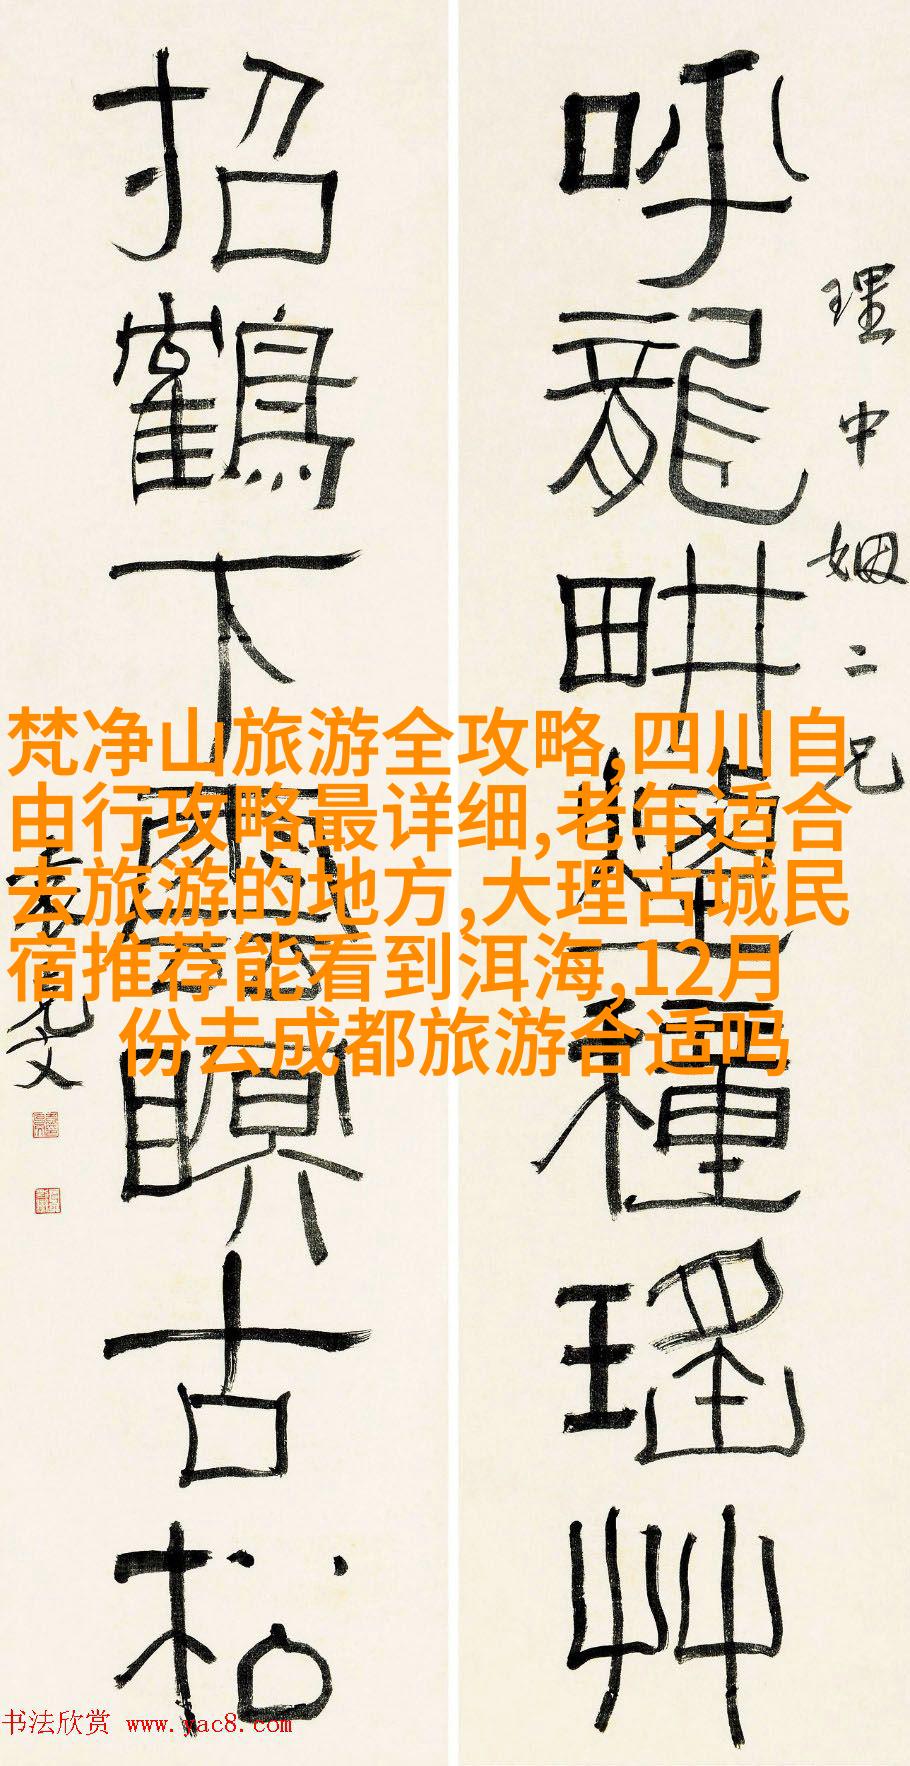 理中姻二兄
呼龍畊種瑤艸
招鶴下瞑古松
袁克文
梵净山旅游全攻略,四川自
由行攻略最详细,老年适合
去旅游的地方,大理古城民
宿推荐能看到洱海,12月
份去成都旅游合适吗
书法欣赏 www.yac8.com